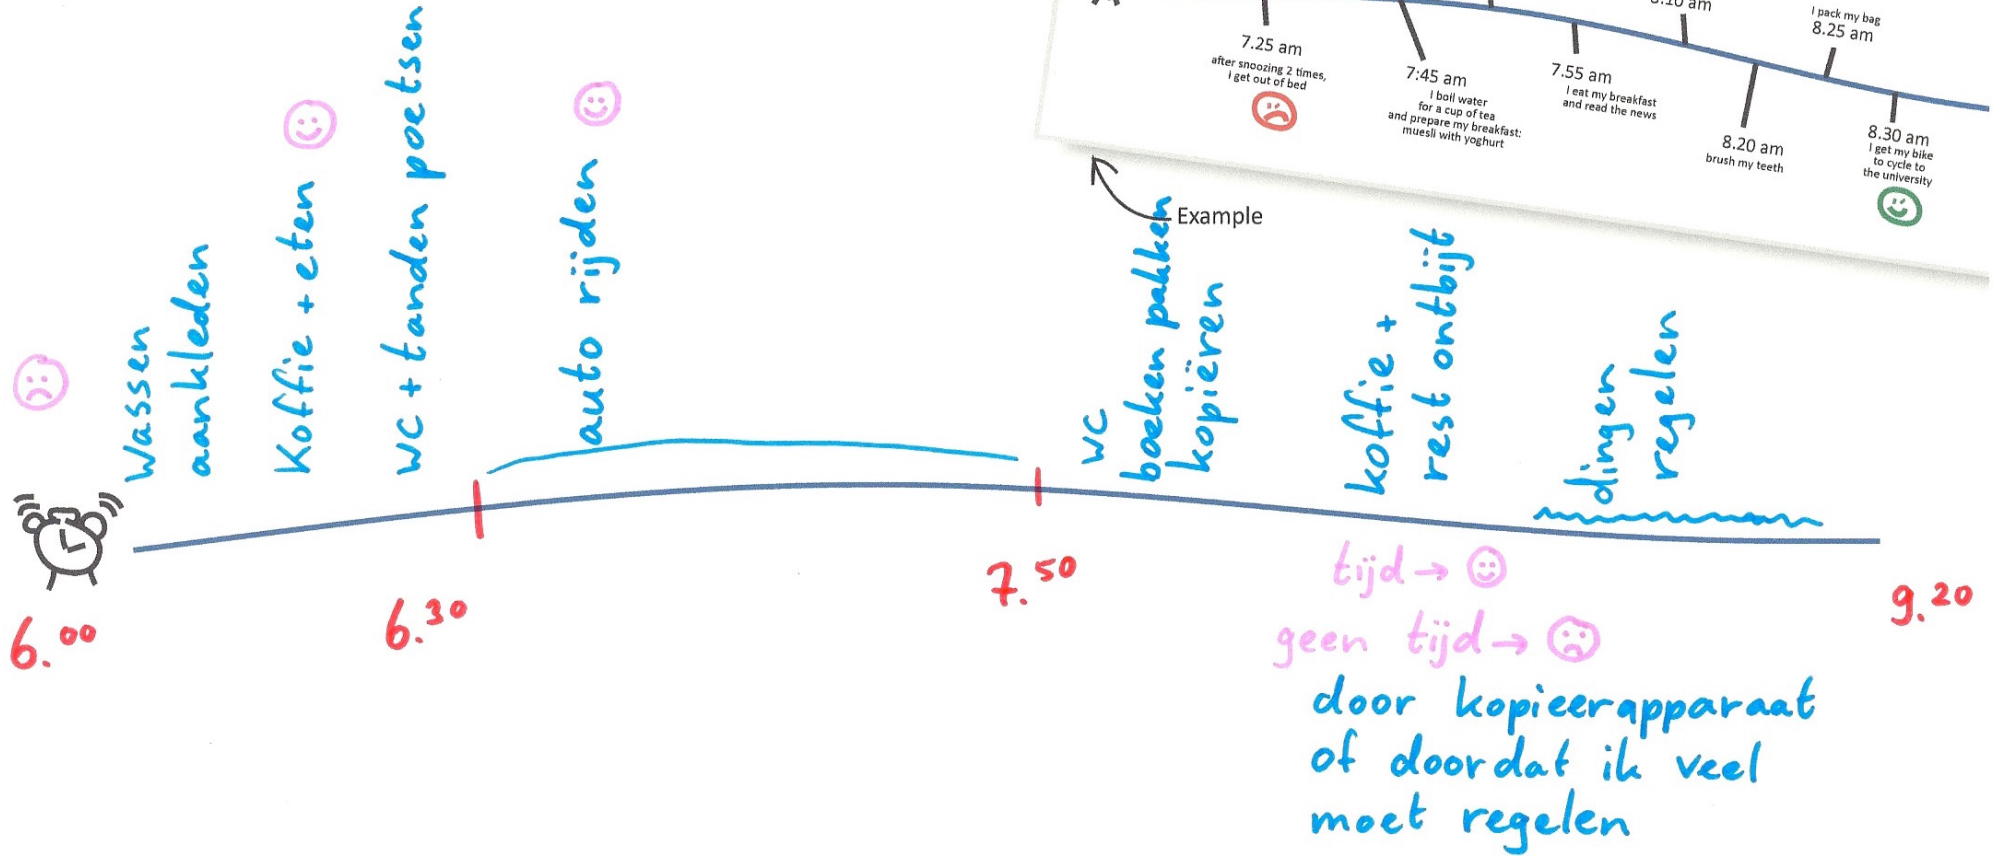 7.25 am
after snoozing 2 times,
i get out of bed
7:45 am
I boil water
for a cup of tea
and prepare my breakfast:
muesli with yoghurt
7.55 am
I eat my breakfast
and read the news
am
8.20 am
brush my teeth
I pack my bag
8.25 am
8.30 am
I get my bike
to cycle to
the university
Example
Wassen
aankleden
Koffie + eten
WC + tanden poetsen
auto rijden
WC
boeken pakken
kopiëren
koffie +
rest ontbijt
dingen
regelen
6.00
6.30
7.50
9.20
tijd →
geen tijd →
door kopieerapparaat
of doordat ik veel
moet regelen